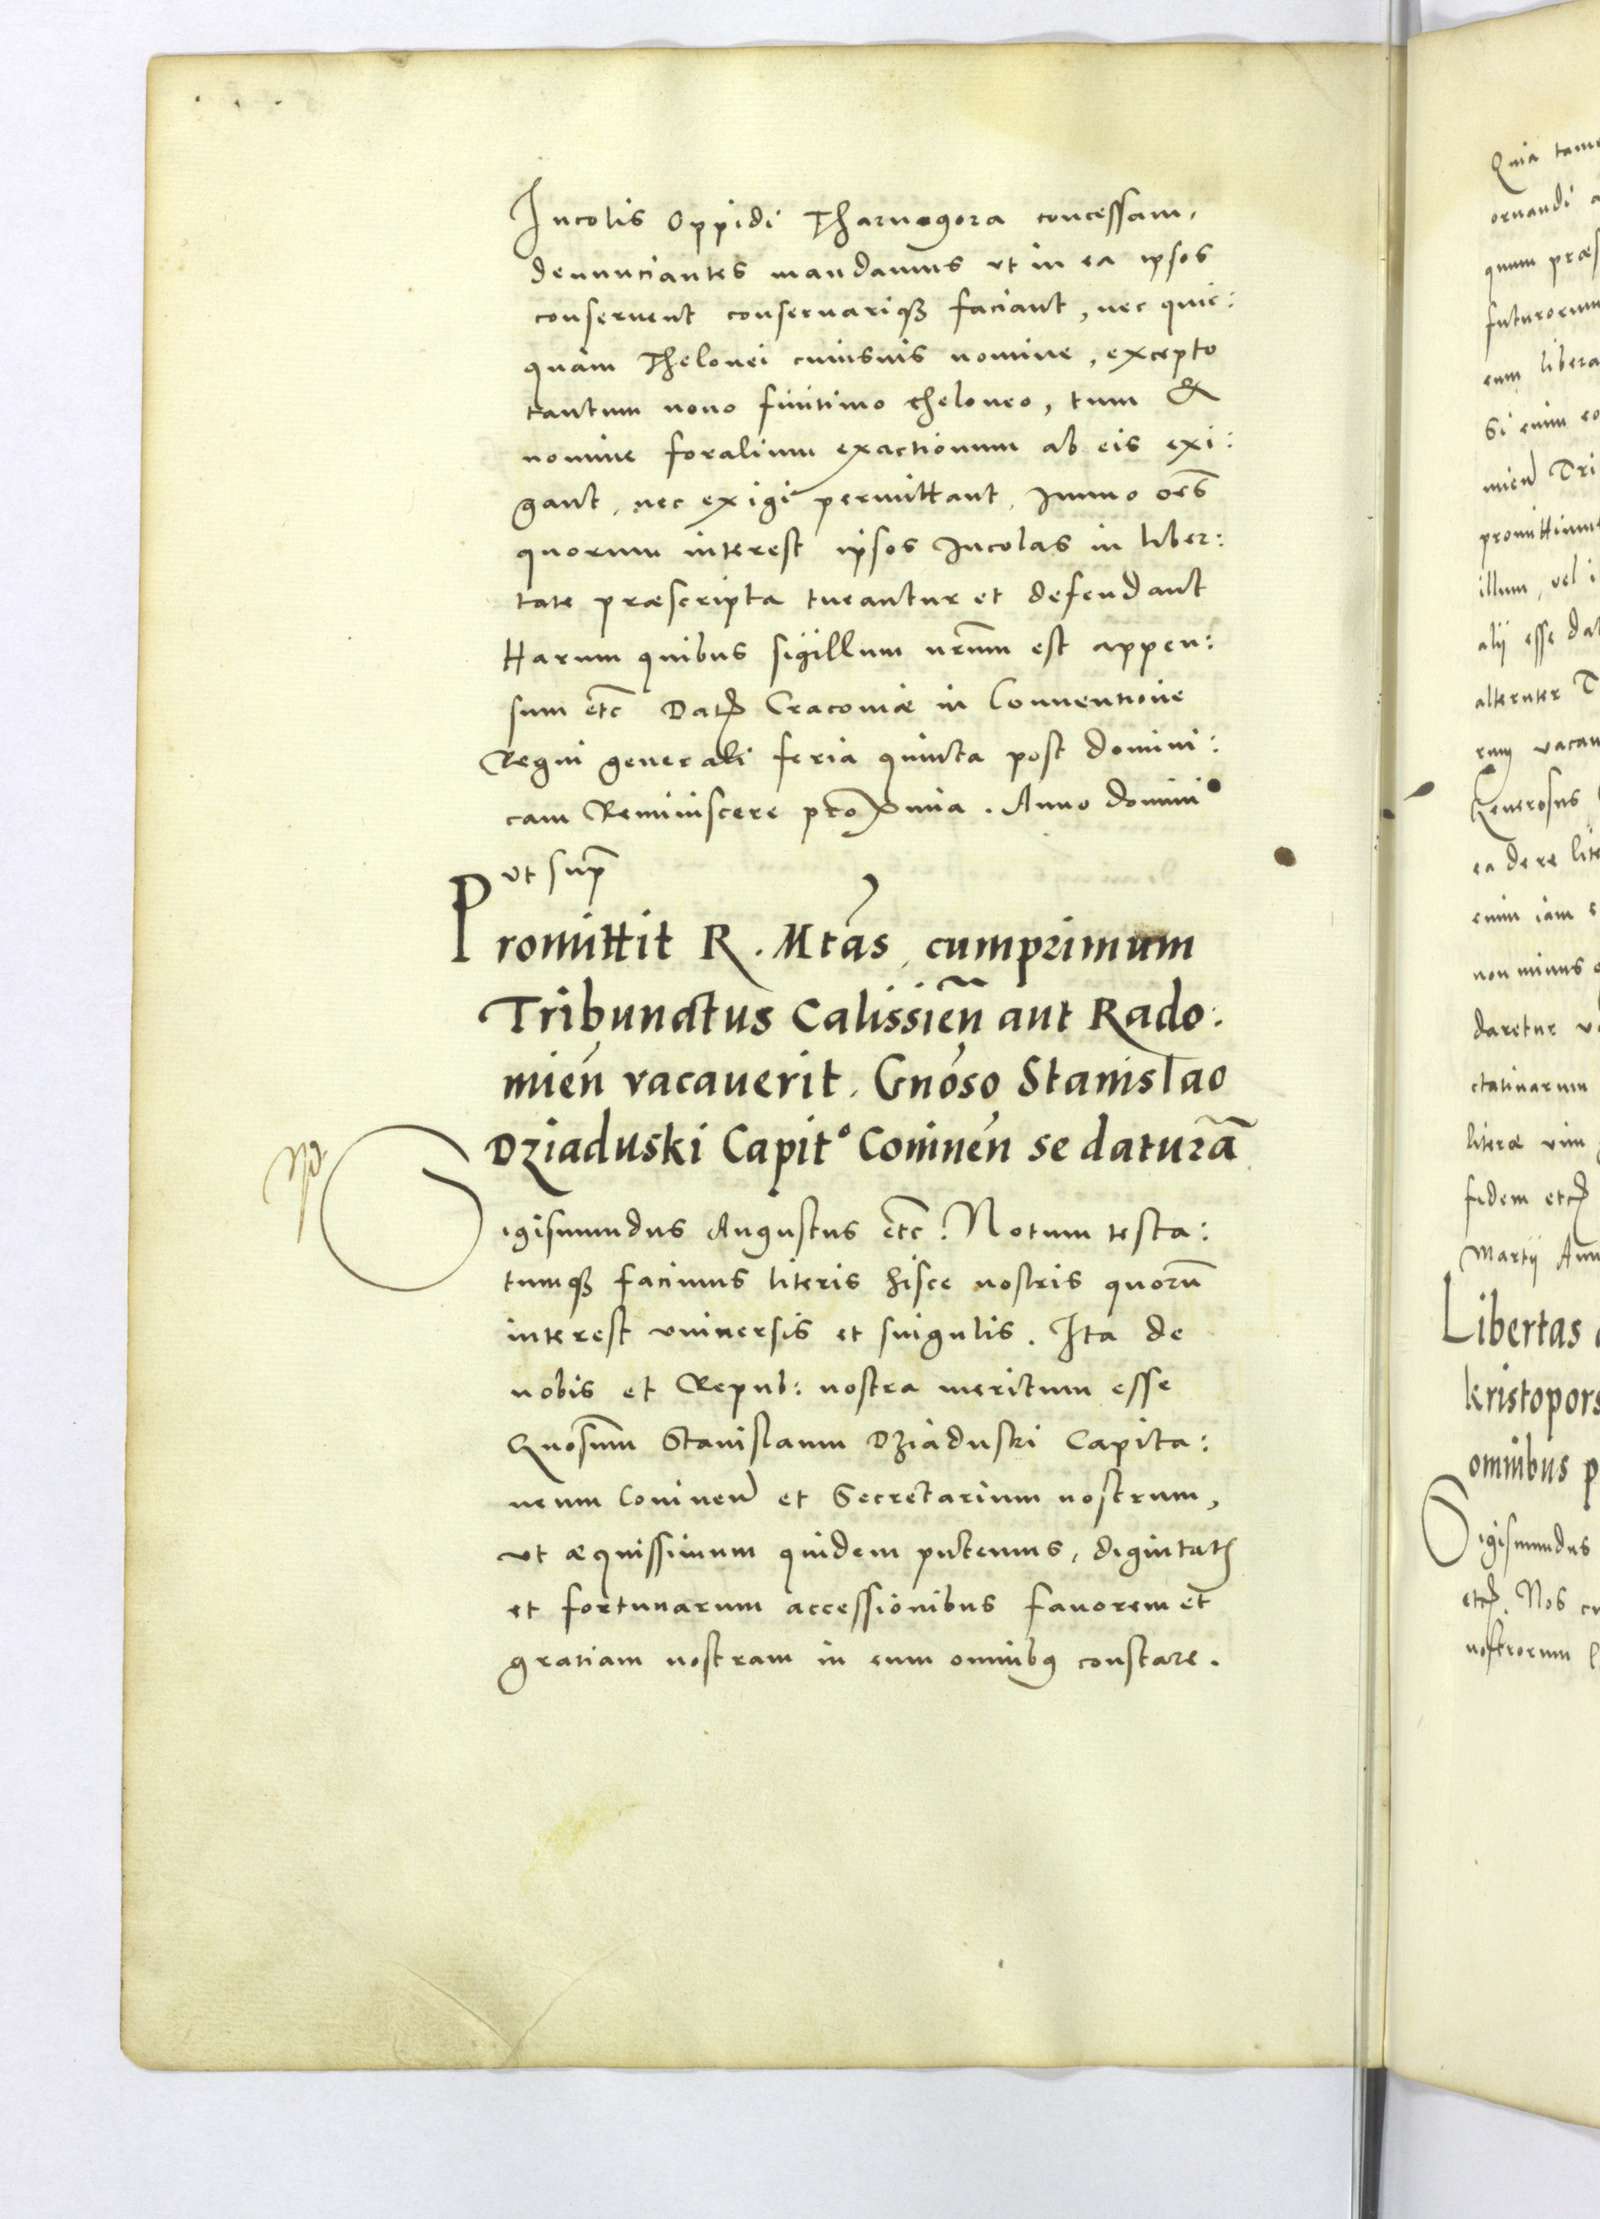 Incolis Oppidi Tharnogora concessam,
denunciantes mandamus vt in ea ipsos
conseruent conseruariqꝫ faciant, nec quic:
quam Thelonei cuiusuis nomine, excepto
tantum nouo finitimo theloneo, tum &
nomine foralium exactionum ab eis exi:
gant, nec exigi permittant, Immo oēs
quorum interest ipsos Incolas in liber:
tate præscripta tueantur et defendant
Harum quibus sigillum nr̄um est appen:
sum etc̄ Datꝭ Cracouiæ in Conuentione
Regni generali feria quinta post domini:
cam Reminiscere proxima. Anno domini
vt supͬ
Promittit R. Mtās, cumprimum
Tribunatus Calissien̄ aut Rado:
mien̄ vacauerit, Gnōso Stanislao
Dziaduski Capit° Coninen̄ se daturā
Sigismundus Augustus etc̄. Notum testa:
tumqꝫ facimus literis hisce nostris quorū
interest vniuersis et singulis. Ita de
nobis et Repub: nostra meritum esse
Gnosūm Stanislaum Dziaduski Capita:
neum Coninen̄ et Secretarium nostrum,
vt æquissimum quidem putemus, dignitatꝭ
et fortunarum accessionibus fauorem et
gratiam nostram in eum omnibꝯ constare.
Quia
ornandi
quum
futurorum
eum
Si enim
mien̄
illum, vel
alij esse
alteruter
Generosus
ea de re
enim iam
non minus
daretur
ctatiuarum
literæ vim
fidem etcꝭ
Martij
Libertas
omnibus
Sigismundus
etcꝭ. Nos
nostrorum